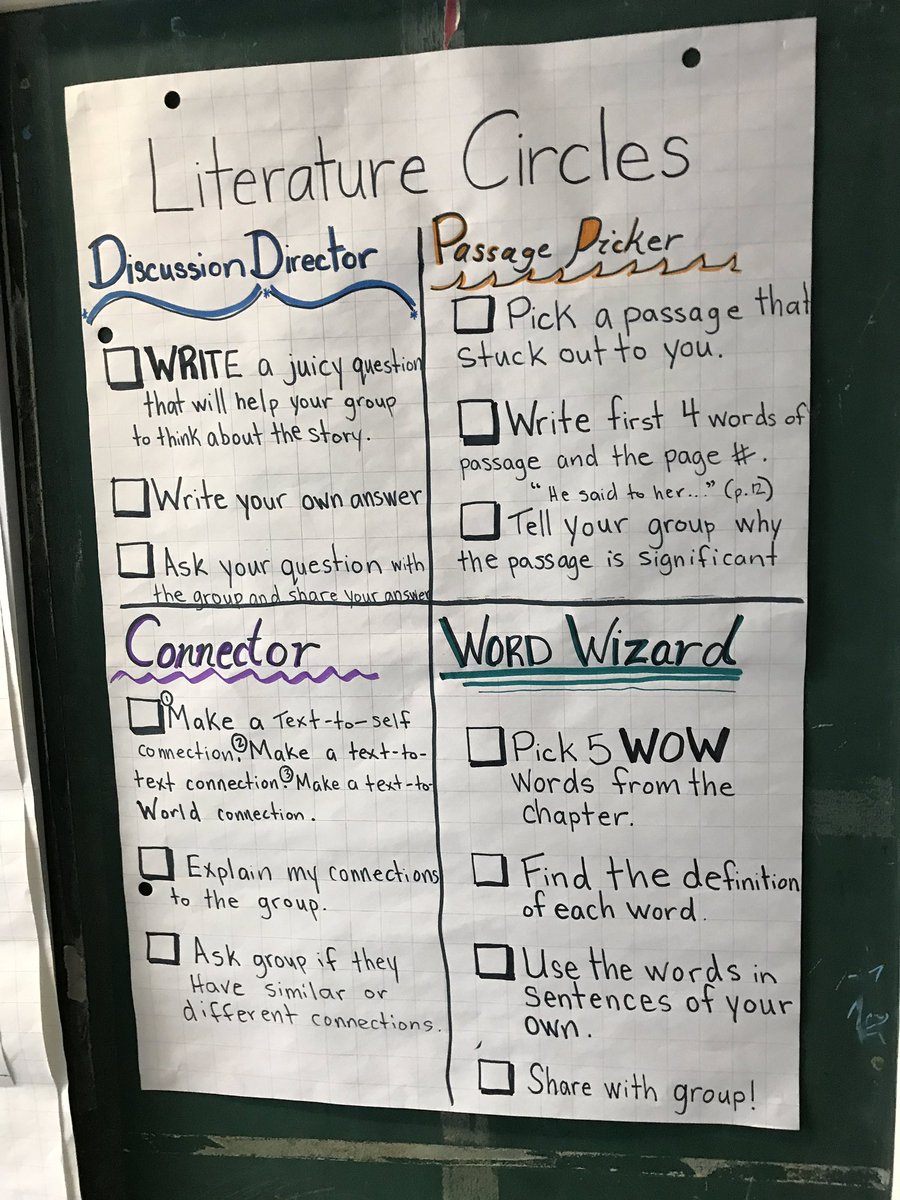 Literature Circles
Discussion Director
WRITE a juicy question
that will help your group
to think about the story.
Write your own answer
Ask your question with
the group and share your answer
Passage Picker
Pick a passage that
stuck out to you.
Write first 4 words of
passage and the page #.
"He said to her..." (p.12)
Tell your group why
the passage is significant
Connector
① Make a Text-to-self
connection. ② Make a text-to-
text connection. ③ Make a text-to-
World connection.
Explain my connections
to the group.
Ask group if they
Have similar or
different connections.
WORD Wizard
Pick 5 WOW
Words from the
chapter.
Find the definition
of each word.
Use the words in
Sentences of your
own.
Share with group!